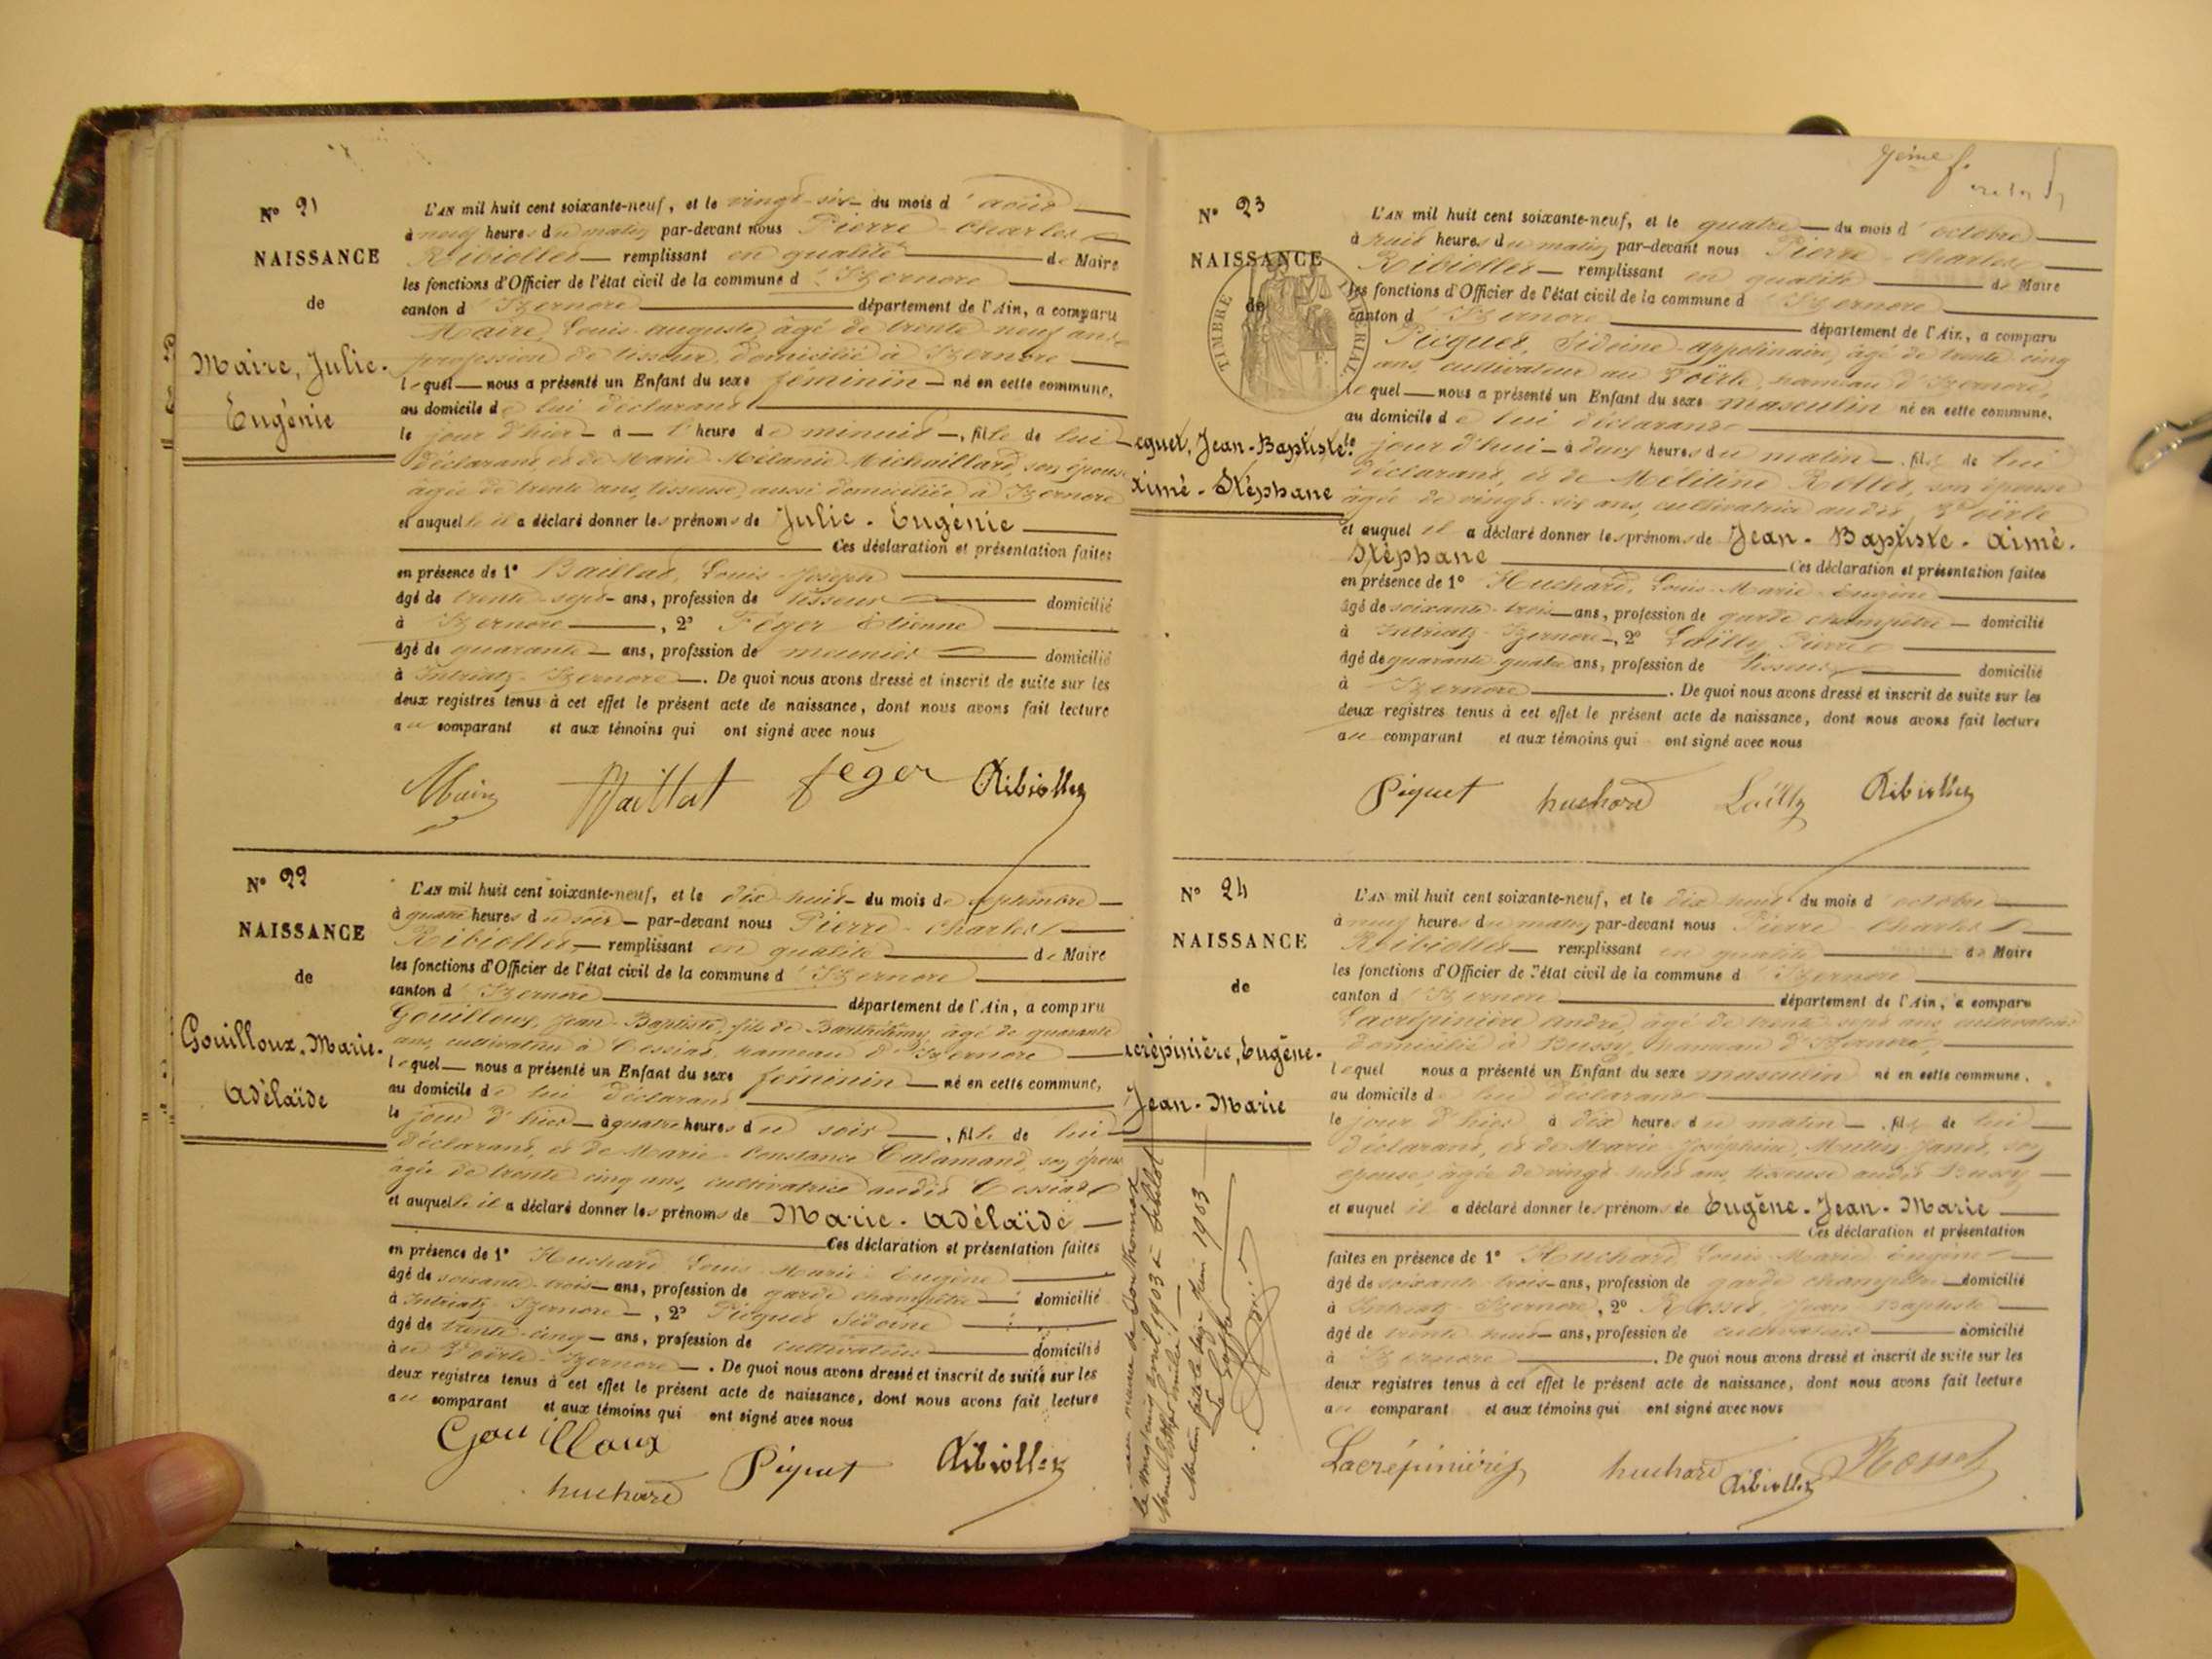 N° 21
NAISSANCE
de
Maire, Julie-
Eugénie
L'AN mil huit cent soixante-neuf, et le vingt-six du mois d'août
à neuf heures du matin par-devant nous Pierre-Charles
Ribiollet remplissant en qualité de Maire
les fonctions d'Officier de l'état civil de la commune d'Izernore
canton d'Izernore département de l'Ain, a comparu
Maire, Louis-auguste, âgé de trente-neuf ans,
profession de tisseur, domicilié à Izernore
lequel nous a présenté un Enfant du sexe féminin né en cette commune,
au domicile de lui déclarant
le jour d'hier à l'heure de minuit, fille de lui
déclarant, et de Marie Mélanie Michaillard, son épouse
âgée de trente ans, tisseuse, aussi domiciliée à Izernore
et auquelle il a déclaré donner les prénoms de Julie-Eugénie
Ces déclaration et présentation faites
en présence de 1° Baillat, Louis-Joseph
âgé de trente-sept ans, profession de tisseur domicilié
à Izernore, 2° Féger Etienne
âgé de quarante ans, profession de meunier domicilié
à Intriatz-Izernore. De quoi nous avons dressé et inscrit de suite sur les
deux registres tenus à cet effet le présent acte de naissance, dont nous avons fait lecture
au comparant et aux témoins qui ont signé avec nous
Maire Baillat féger Ribiollet
N° 22
NAISSANCE
de
Gouilloux, Marie-
Adélaïde
L'AN mil huit cent soixante-neuf, et le dix-huit du mois de septembre
à quatre heures du soir par-devant nous Pierre-Charles
Ribiollet remplissant en qualité de Maire
les fonctions d'Officier de l'état civil de la commune d'Izernore
canton d'Izernore département de l'Ain, a comparu
Gouilloux, Jean-Baptiste, fils de Barthélemy, âgé de quarante
ans, cultivateur à Cessiat, hameau d'Izernore
lequel nous a présenté un Enfant du sexe féminin né en cette commune,
au domicile de lui déclarant
le jour d'hier à quatre heures du soir, fille de lui
déclarant, et de Marie-Constance Calamand, son épouse
âgée de trente cinq ans, cultivatrice audit Cessiat
et auquelle il a déclaré donner les prénoms de Marie-Adélaïde
Ces déclaration et présentation faites
en présence de 1° Huchard Louis-Marie-Eugène
âgé de soixante-trois ans, profession de garde champêtre domicilié
à Intriatz-Izernore, 2° Picquet Sidoine
âgé de trente-cinq ans, profession de cultivateur domicilié
au Voërle-Izernore. De quoi nous avons dressé et inscrit de suite sur les
deux registres tenus à cet effet le présent acte de naissance, dont nous avons fait lecture
au comparant et aux témoins qui ont signé avec nous
Gouilloux
huchard Piquet Ribiollet
N° 23
NAISSANCE
de
TIMBRE
cquet, Jean-Baptiste
Aimé-Stéphane
L'AN mil huit cent soixante-neuf, et le quatre du mois d'octobre
à huit heures du matin par-devant nous Pierre-Charles
Ribiollet remplissant en qualité de Maire
les fonctions d'Officier de l'état civil de la commune d'Izernore
canton d'Izernore département de l'Ain, a comparu
Picquet, Sidoine-appolinaire, âgé de trente-cinq
ans, cultivateur au Voërle, hameau d'Izernore,
lequel nous a présenté un Enfant du sexe masculin né en cette commune,
au domicile de lui déclarant
le jour d'hui à deux heures du matin, fils de lui
déclarant, et de Mélitine Rollet, son épouse
âgée de vingt-six ans, cultivatrice audit Voërle
et auquel il a déclaré donner les prénoms de Jean-Baptiste-Aimé-
Stéphane Ces déclaration et présentation faites
en présence de 1° Huchard, Louis-Marie-Eugène
âgé de soixante-trois ans, profession de garde champêtre domicilié
à Intriatz-Izernore, 2° Lailly, Pierre
âgé de quarante quatre ans, profession de tisseur domicilié
à Izernore. De quoi nous avons dressé et inscrit de suite sur les
deux registres tenus à cet effet le présent acte de naissance, dont nous avons fait lecture
au comparant et aux témoins qui ont signé avec nous
Piquet huchard Lailly Ribiollet
N° 24
NAISSANCE
de
acrépinière, Eugène-
Jean-Marie
L'AN mil huit cent soixante-neuf, et le dix huit du mois d'octobre
à neuf heures du matin par-devant nous Pierre Charles
Ribiollet remplissant en qualité de Maire
les fonctions d'Officier de l'état civil de la commune d'Izernore
canton d'Izernore département de l'Ain, a comparu
Lacrépinière André, âgé de trente sept ans, cultivateur
domicilié à Bussy, hameau d'Izernore,
lequel nous a présenté un Enfant du sexe masculin né en cette commune,
au domicile de lui déclarant
le jour d'hier à dix heures du matin, fils de lui
déclarant, et de Marie-Joséphine, son
épouse, âgée de vingt-huit ans, tisseuse audit Bussy
et auquel il a déclaré donner les prénoms de Eugène-Jean-Marie
Ces déclaration et présentation
faites en présence de 1° Huchard Louis-Marie-Eugène
âgé de soixante-trois ans, profession de garde champêtre domicilié
à Intriatz Izernore, 2° Rosset, Jean-Baptiste
âgé de trente-huit ans, profession de cultivateur domicilié
à Izernore. De quoi nous avons dressé et inscrit de suite sur les
deux registres tenus à cet effet le présent acte de naissance, dont nous avons fait lecture
au comparant et aux témoins qui ont signé avec nous
Lacrépinière huchard Ribiollet Rosset
le vingt cinq avril 1903 à
Mention faite le 1903
Le Greffier